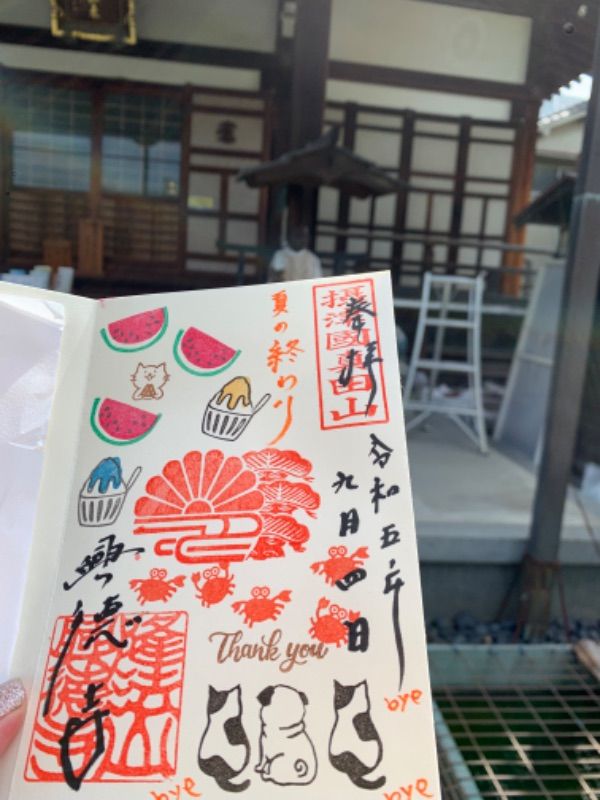 奉拝
摂津國真田山
令和五年
九月四日
夏の終わり
興徳寺
Thank you
bye
bye
bye